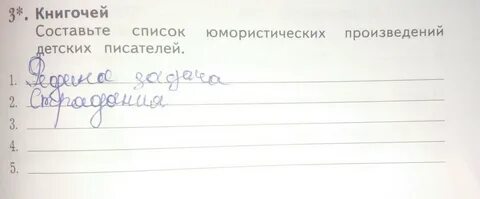 3*. Книгочей
Составьте список юмористических произведений
детских писателей.
1. Федина задача
2. Страдания
3.
4.
5.